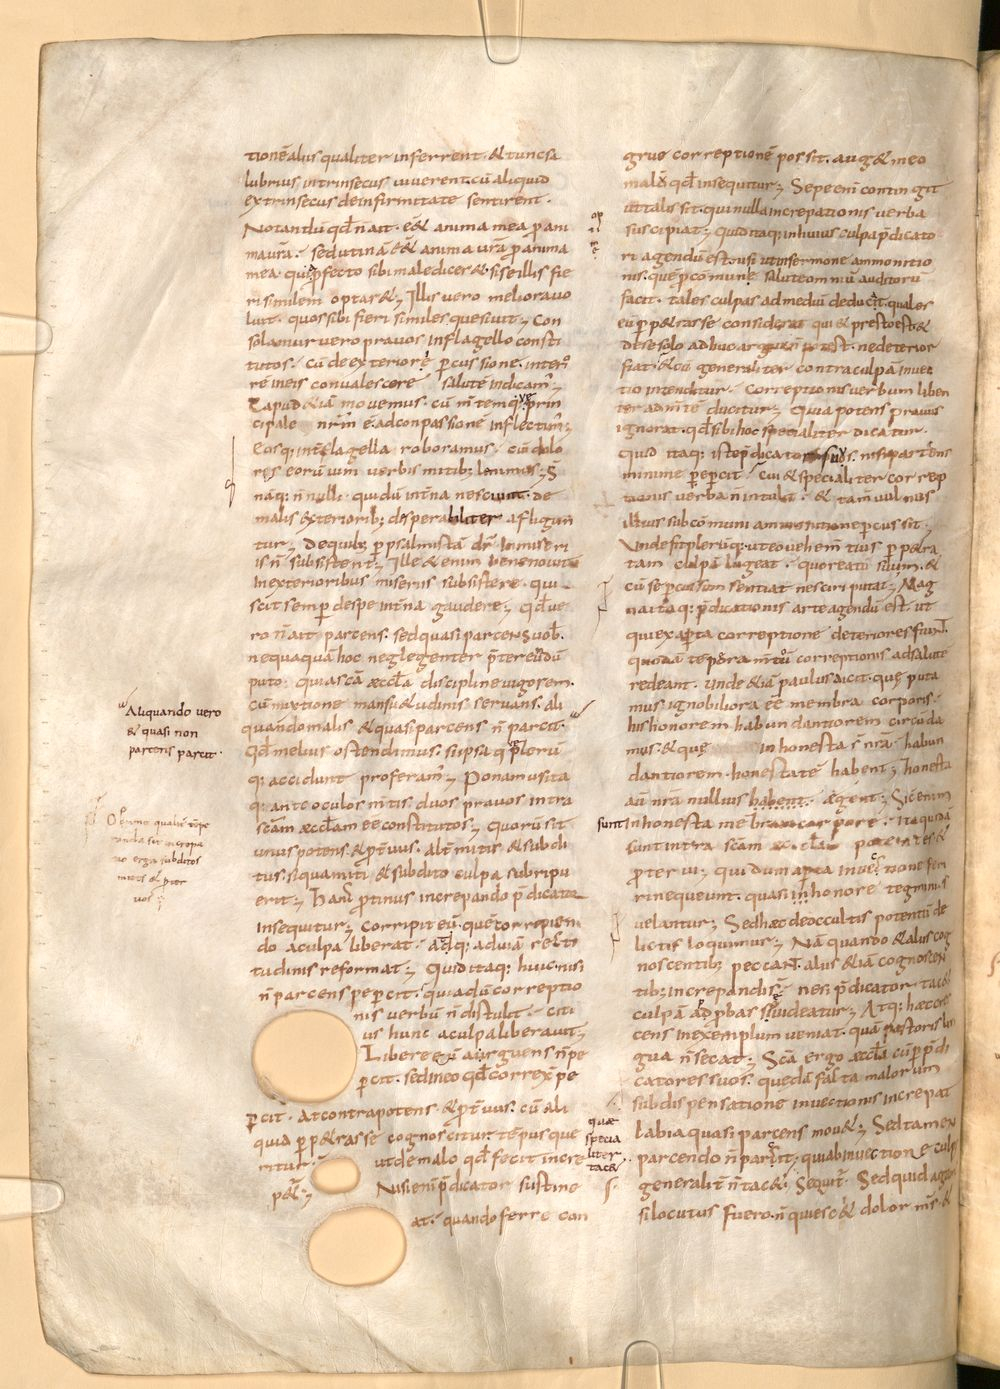 tionē aliis qualiter inferrent· & tunc sa
lubrius intrinsecus viverent· cū aliquid
extrinsecus de infirmitate sentirent·
Notandū qđ n̄ ait· eē& anima mea ꝓ ani
ma vr̄a· sed utinā eē& anima vr̄a ꝓ anima
mea· qui ꝓfecto sibi maledicer& si se illis fie
ri similem optar&; Illis vero melioravo
luit· quos sibi fieri similes quesiuit; Con
solamur vero pravos in flagello consti
tutos· Cū de exteriore ꝑcussione· interi
re in eis convalescere salutē indicam᷒;
cipale nr̄m ē· ad conpassione inflectim᷒;
Eosq; int̄ flagella roboramus· cū dolo
res eorū verbis mitib; lenimus;
naq; n̄nulli· qui dū int̄na nesciunt· de
malis exteriorib; desperabiliter affligun
tur; De quib; ꝑ psalmistā dr̄· In miseri
is n̄ subsistent; Ille & enim bene novit
In exterioribus miseriis subsistere· qui
scit semꝑ de spe int̄na gaudere; Qđ ue
ro n̄ ait parcens· sed quasi parcens vob̄·
nequaquā hoc neglegenter p̄tereūdū
puto· quia scā æccl̄a discipline vigorem·
cū mixtione mansu&udinis servans· ali
quando malis & quasi parcens n̄ parcit·
Qđ melius ostendimus· si ipsa q̨ plerū
q; accidunt proferam᷒; Ponamus ita
q; ante oculos m̄tis· duos pravos intra
scām æccl̄am eē constitutos; Quorū sit
unus potens· & ꝓt̄uus· alt̄ mitis & subdi
tus· si qua miti & subdito culpa subripu
erit; Hanc ꝓtinus increpando p̄dicator
insequitur; Corripit eū· quē corripien
do a culpa liberat· adq; ad viā recti
tudinis reformat; Quid itaq; huic· nisi
n̄ parcens peꝑcit· qui a dū correptio
nis verbū n̄ distulit· citi
us hunc a culpa liberavit;
Libere eū arguens n̄ pe
ꝑcit· sed in eo qđ correx̄ pe
ꝑcit· At contra potens & ꝓt̄uus· cū ali
quia ꝑꝑ&rasse cognoscitur· tēpus que
ritur· ut de malo qđ fecit incre
p&ur; Nisi enī p̄dicator sustine
at· quando ferre con
Aliquando vero
& quasi non
parcens parcit·
mites & pter
vos
grue correptionē possit· aug& in eo
malū qđ insequitur; Sepe enī contingit
ut talis sit· qui nulla increpationis verba
suscipiat; quid itaq; in huius culpa p̄dicato
ri agendū est· nisi ut in sermone ammonitio
nis· quē ꝓ comune salute omniū auditorū
facit· tales culpas ad mediū deducat· quales
eū ꝑꝑ&rasse considerat qui & presto est· &
de se solo adhuc argui n̄ potest· ne deterior
fiat· & cū generaliter contra culpā invec
tio intenditur· correptionis verbum liben
ter ad m̄tē ducitur; Quia potens pravus
ignorat· qđ sibi hoc specialiter dicatur·
minime peꝑcit· cui & specialiter correp
tionis verba n̄ intulit· & tam̄ vulnus
illius sub comuni ammonitione ꝑcussit·
Unde fit plerūq; ut eo vehem̄tius ꝑꝑ&ra
tam culpā lugeat· quo reatū suum· &
cū se ꝑcussum sentiat nesciri putat; Mag
na itaq; p̄dicationis arte agendū est· ut
qui ex aꝑta correptione deteriores fiunt
quodā tēꝑamtō correptionis ad salutē
redeant· Unde &iā paulus dicit· quę puta
mus ignobiliora eē membra corporis·
his honorem habundantiorem circūda
mus· & quę inhonesta s̄ nr̄a· habun
dantiorem· honestatē habent; honesta
aū nr̄a nullius habent· egent; Sic enim
sunt intra scām æccl̄am potentes &
ꝓterui; qui dum aꝑta invectione feri
ri nequeunt· quasi in honore tegminis
velantur; Sed hæc de occultis potentū de
lictis loquimur; Nā quando & aliis cog
noscentib; peccant· aliis &iā cognoscen
tib; increpandi s̄· ne si p̄dicator tac&
culpā adꝓbasse videatur; Atq; hæc cres
cens in exemplum veniat· quā pastoris lin
gua n̄ secat; Scā ergo æccl̄a cū ꝑ p̄di
catores suos· quedā facta malorum
sub dispensatione invectionis increpat
labia quasi parcens mou&; Sed tamen
parcendo n̄ parcit; quia b invectione culpā
generalit̄ n̄ tac&; Sequit᷒· Sed quid agam
si locutus fuero· n̄ quiesc& dolor m̄s· &
sunt
quæ
specia
liter
tac&